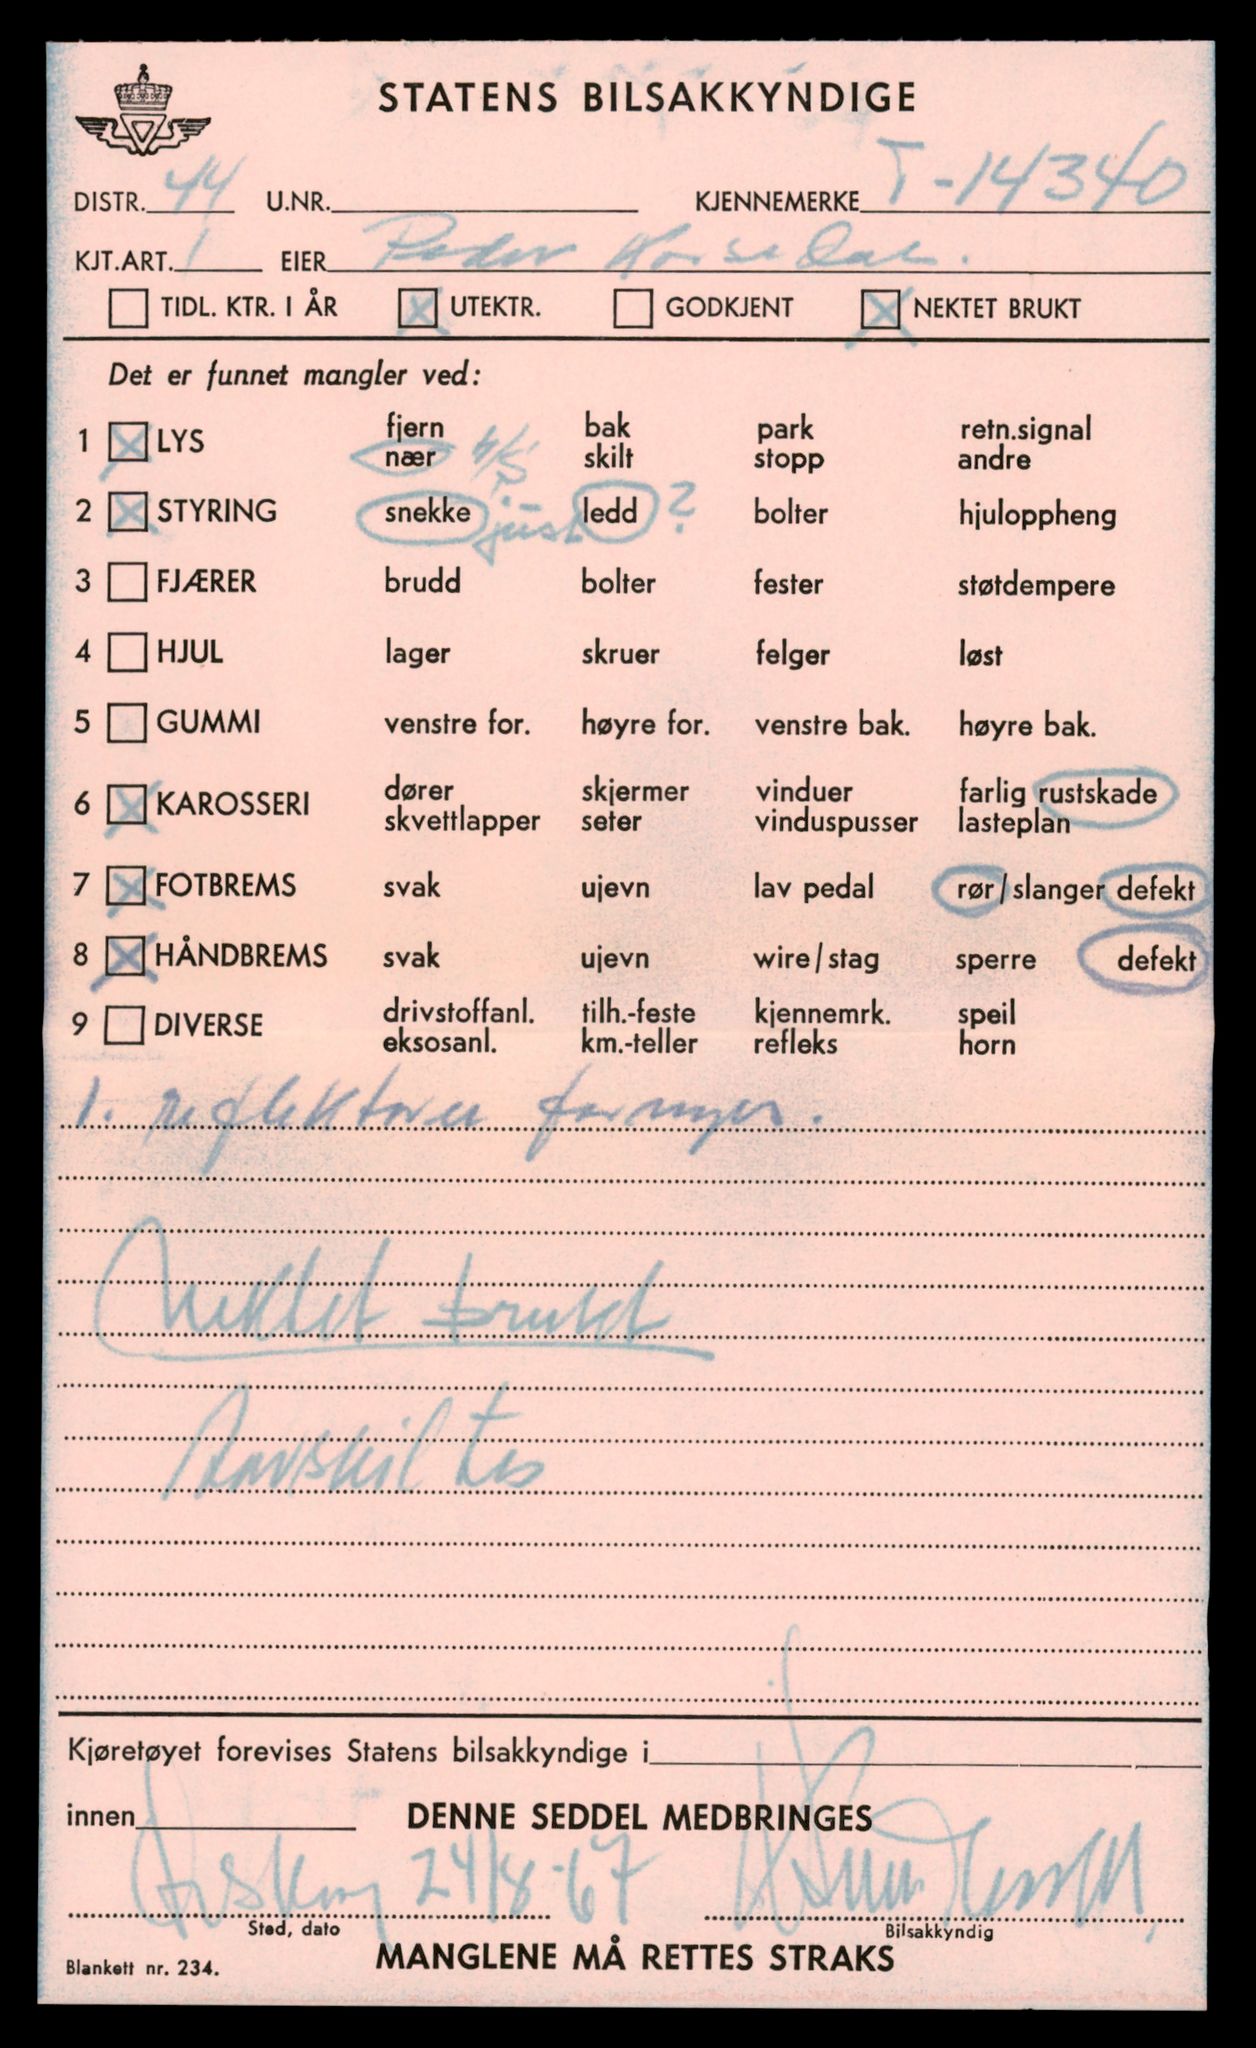 STATENS BILSAKKYNDIGE
DISTR. 44 U.NR. KJENNEMERKE T-14340
KJT.ART. 1 EIER Peder
TIDL. KTR. I ÅR UTEKTR. GODKJENT NEKTET BRUKT
Det er funnet mangler ved:
1 LYS fjern bak park retn.signal
nær skilt stopp andre
2 STYRING snekke just ledd ? bolter hjuloppheng
3 FJÆRER brudd bolter fester støtdempere
4 HJUL lager skruer felger løst
5 GUMMI venstre for. høyre for. venstre bak. høyre bak.
6 KAROSSERI dører skjermer vinduer farlig rustskade
skvettlapper seter vinduspusser lasteplan
7 FOTBREMS svak ujevn lav pedal rør/slanger defekt
8 HÅNDBREMS svak ujevn wire/stag sperre defekt
9 DIVERSE drivstoffanl. tilh.-feste kjennemrk. speil
eksosanl. km.-teller refleks horn
1. reflektorer fornyes.
Nektet brukt
Avskiltes
Kjøretøyet forevises Statens bilsakkyndige i
innen DENNE SEDDEL MEDBRINGES
24/8-67
Sted, dato Bilsakkyndig
Blankett nr. 234. MANGLENE MÅ RETTES STRAKS